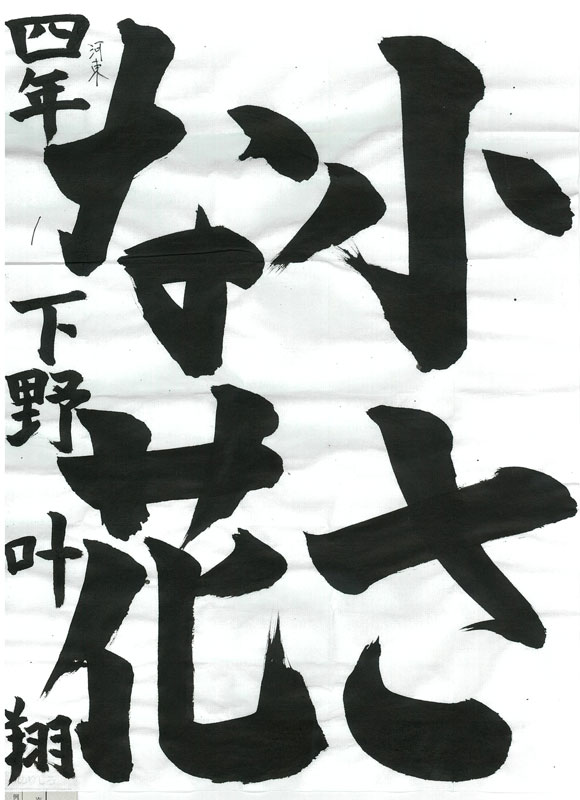 小さ
な花
四年 下野 叶翔
河東